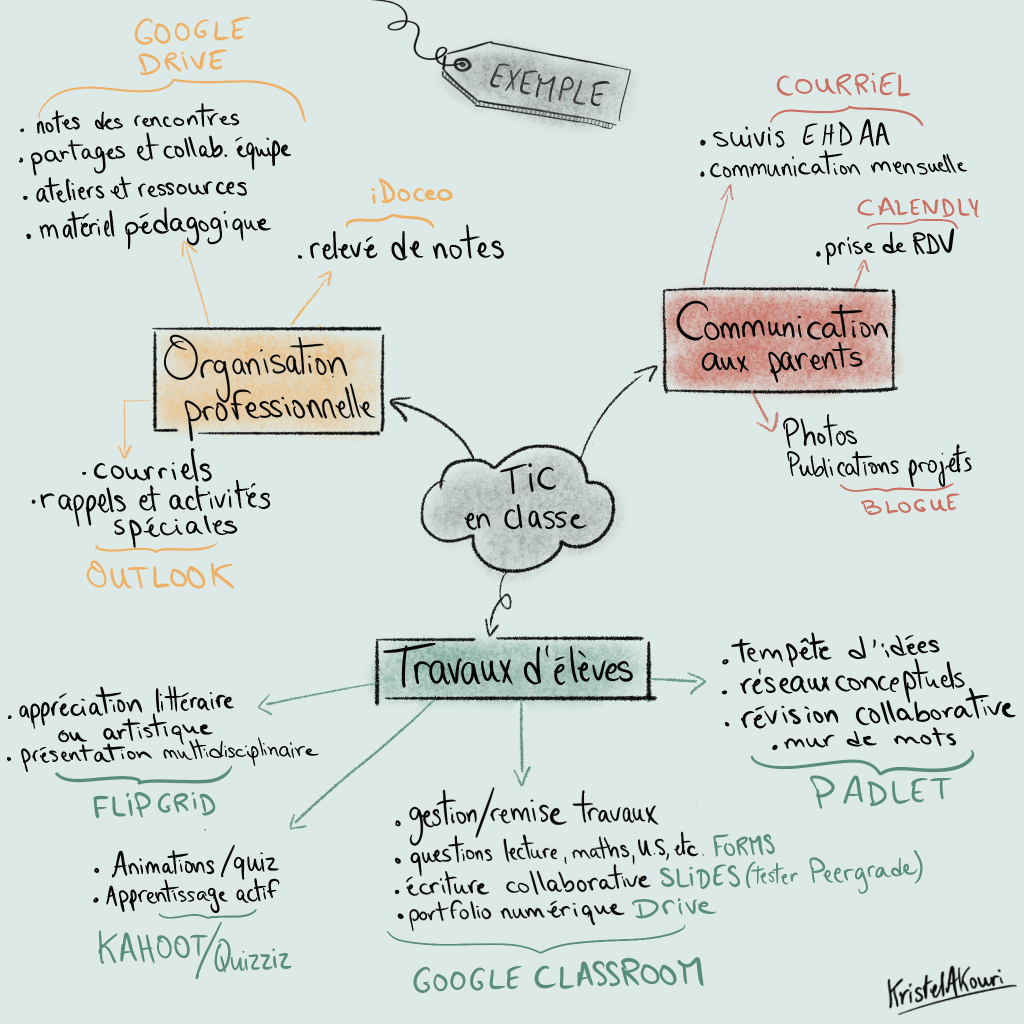 EXEMPLE
GOOGLE
DRIVE
. notes des rencontres
. partages et collab. équipe
. ateliers et ressources
. matériel pédagogique
iDoceo
. relevé de notes
Organisation
professionnelle
. courriels
. rappels et activités
spéciales
OUTLOOK
COURRIEL
. suivis EHDAA
. communication mensuelle
CALENDLY
. prise de RDV
Communication
aux parents
Photos
Publications projets
BLOGUE
TIC
en classe
Travaux d'élèves
. appréciation littéraire
ou artistique
. présentation multidisciplinaire
FLIPGRID
. Animations/quiz
. Apprentissage actif
KAHOOT/Quizziz
. gestion/remise travaux
. questions lecture, maths, U.S, etc. FORMS
. écriture collaborative SLIDES (tester Peergrade)
. portfolio numérique Drive
GOOGLE CLASSROOM
. tempête d'idées
. réseaux conceptuels
. révision collaborative
. mur de mots
PADLET
KristelAKouri